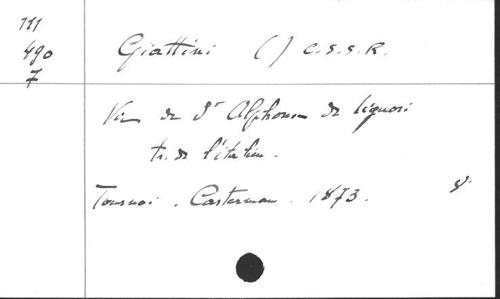 111
490
7
Giattini ( ) C.S.S.R.
Vie de St Alphonse de Liguori
tr. de l'italien.
Tournai. Casterman. 1873.
8°